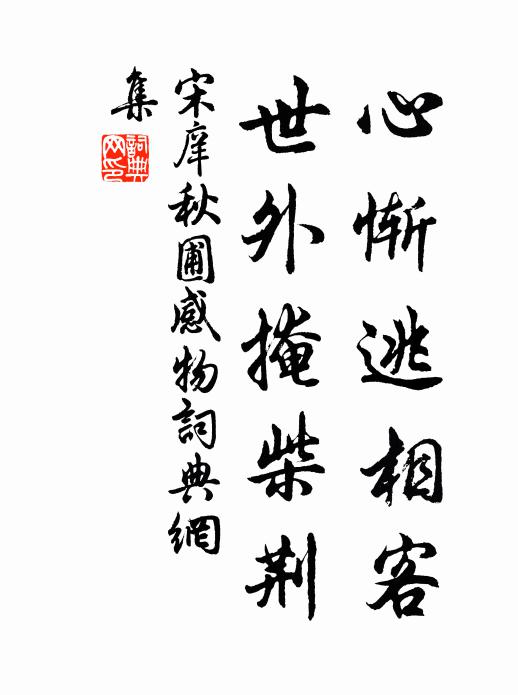 心惭逃相客
世外掩柴荆
宋庠秋圃感物詞典網
集
詞典
网印